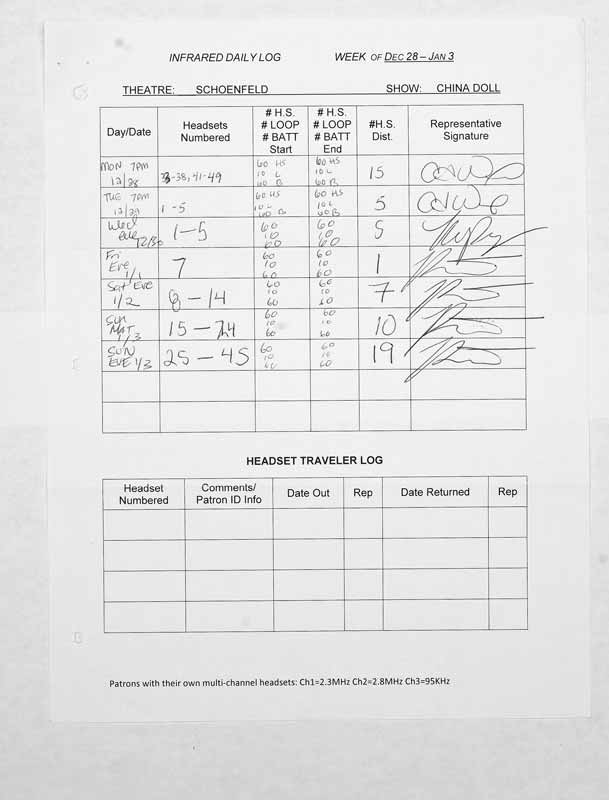 INFRARED DAILY LOG WEEK OF DEC 28 – JAN 3
THEATRE: SCHOENFELD SHOW: CHINA DOLL
Day/Date Headsets Numbered # H.S. # LOOP # BATT Start # H.S. # LOOP # BATT End #H.S. Dist. Representative Signature
MON 7PM 12/28 -38, 41-49 60 HS 10 L 60 B 60 HS 10 L 60 B 15
TUE 7PM 12/29 1-5 60 HS 10 L 60 B 60 HS 10 L 60 B 5
Wed Eve 12/30 1-5 60 10 60 60 10 60 5
Fri Eve 1/1 7 60 10 60 60 10 60 1
Sat Eve 1/2 8-14 60 10 60 60 10 60 7
Sun MAT 1/3 15-24 60 10 60 60 10 60 10
SUN EVE 1/3 25-45 60 10 60 60 10 60 19
HEADSET TRAVELER LOG
Headset Numbered Comments/ Patron ID Info Date Out Rep Date Returned Rep
Patrons with their own multi-channel headsets: Ch1=2.3MHz Ch2=2.8MHz Ch3=95KHz